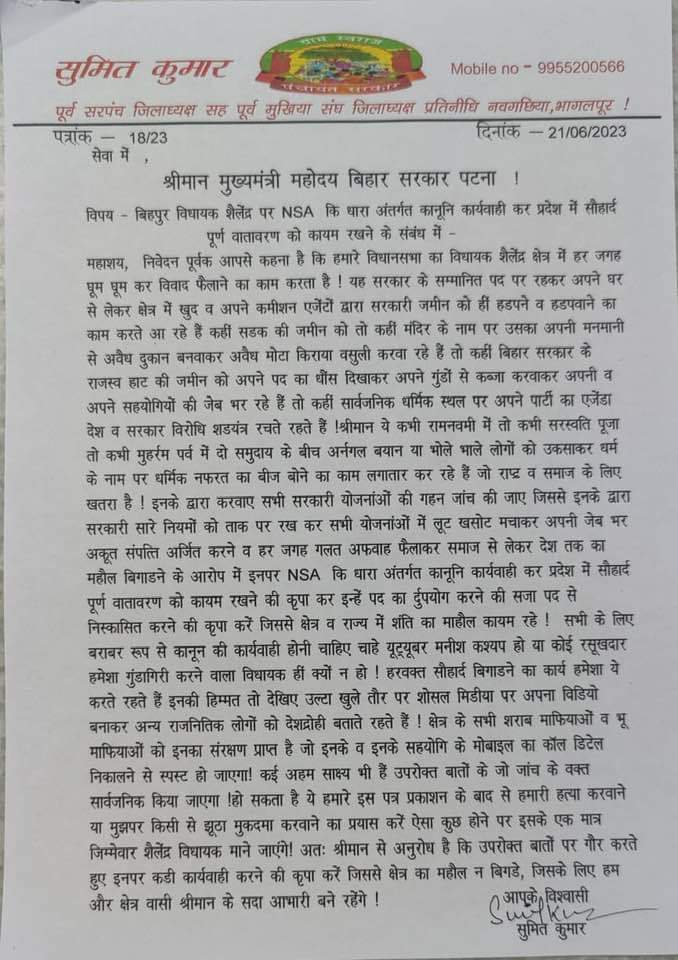 ग्राम स्वराज
सुमित कुमार
पंचायत सरकार
Mobile no - 9955200566
पूर्व सरपंच जिलाध्यक्ष सह पूर्व मुखिया संघ जिलाध्यक्ष प्रतिनीधि नवगछिया,भागलपूर !
पत्रांक – 18/23
दिनांक – 21/06/2023
सेवा में ,
श्रीमान मुख्यमंत्री महोदय बिहार सरकार पटना !
विपय - बिहपुर विधायक शैलेंद्र पर NSA कि धारा अंतर्गत कानूनि कार्यवाही कर प्रदेश में सौहार्द
पूर्ण वातावरण को कायम रखने के संबंध में -
महाशय, निवेदन पूर्वक आपसे कहना है कि हमारे विधानसभा का विधायक शैलेंद्र क्षेत्र में हर जगह
घूम घूम कर विवाद फैलाने का काम करता है ! यह सरकार के सम्मानित पद पर रहकर अपने घर
से लेकर क्षेत्र में खुद व अपने कमीशन एजेंटों द्वारा सरकारी जमीन को हीं हडपने व हडपवाने का
काम करते आ रहे हैं कहीं सडक की जमीन को तो कहीं मंदिर के नाम पर उसका अपनी मनमानी
से अवैध दुकान बनवाकर अवैध मोटा किराया वसुली करवा रहे हैं तो कहीं बिहार सरकार के
राजस्व हाट की जमीन को अपने पद का धौंस दिखाकर अपने गुंडों से कब्जा करवाकर अपनी व
अपने सहयोगियों की जेब भर रहे हैं तो कहीं सार्वजनिक धर्मिक स्थल पर अपने पार्टी का एजेंडा
देश व सरकार विरोधि शडयंत्र रचते रहते हैं !श्रीमान ये कभी रामनवमी में तो कभी सरस्वति पूजा
तो कभी मुहर्रम पर्व में दो समुदाय के बीच अर्नगल बयान या भोले भाले लोगों को उकसाकर धर्म
के नाम पर धर्मिक नफरत का बीज बोने का काम लगातार कर रहे हैं जो राष्ट्र व समाज के लिए
खतरा है ! इनके द्वारा करवाए सभी सरकारी योजनांओं की गहन जांच की जाए जिससे इनके द्वारा
सरकारी सारे नियमों को ताक पर रख कर सभी योजनांओं में लूट खसोट मचाकर अपनी जेब भर
अकूत संपत्ति अर्जित करने व हर जगह गलत अफवाह फैलाकर समाज से लेकर देश तक का
महौल बिगाडने के आरोप में इनपर NSA कि धारा अंतर्गत कानूनि कार्यवाही कर प्रदेश में सौहार्द
पूर्ण वातावरण को कायम रखने की कृपा कर इन्हें पद का र्दुपयोग करने की सजा पद से
निस्कासित करने की कृपा करें जिससे क्षेत्र व राज्य में शंति का माहौल कायम रहे ! सभी के लिए
बराबर रूप से कानून की कार्यवाही होनी चाहिए चाहे यूट्यूबर मनीश कश्यप हो या कोई रसूखदार
हमेशा गुंडागिरी करने वाला विधायक हीं क्यों न हो ! हरवक्त सौहार्द बिगाडने का कार्य हमेशा ये
करते रहते हैं इनकी हिम्मत तो देखिए उल्टा खुले तौर पर शोसल मिडीया पर अपना विडियो
बनाकर अन्य राजनितिक लोगों को देशद्रोही बताते रहते हैं ! क्षेत्र के सभी शराब माफियाओं व भू
माफियाओं को इनका संरक्षण प्राप्त है जो इनके व इनके सहयोगि के मोबाइल का कॉल डिटेल
निकालने से स्पस्ट हो जाएगा! कई अहम साक्ष्य भी हैं उपरोक्त बातों के जो जांच के वक्त
सार्वजनिक किया जाएगा !हो सकता है ये हमारे इस पत्र प्रकाशन के बाद से हमारी हत्या करवाने
या मुझपर किसी से झूठा मुकदमा करवाने का प्रयास करें ऐसा कुछ होने पर इसके एक मात्र
जिम्मेवार शैलेंद्र विधायक माने जाएंगे! अतः श्रीमान से अनुरोध है कि उपरोक्त बातों पर गौर करते
हुए इनपर कडी कार्यवाही करने की कृपा करें जिससे क्षेत्र का महौल न बिगडे, जिसके लिए हम
और क्षेत्र वासी श्रीमान के सदा आभारी बने रहेंगे !
आपके विश्वासी
सुमित कुमार